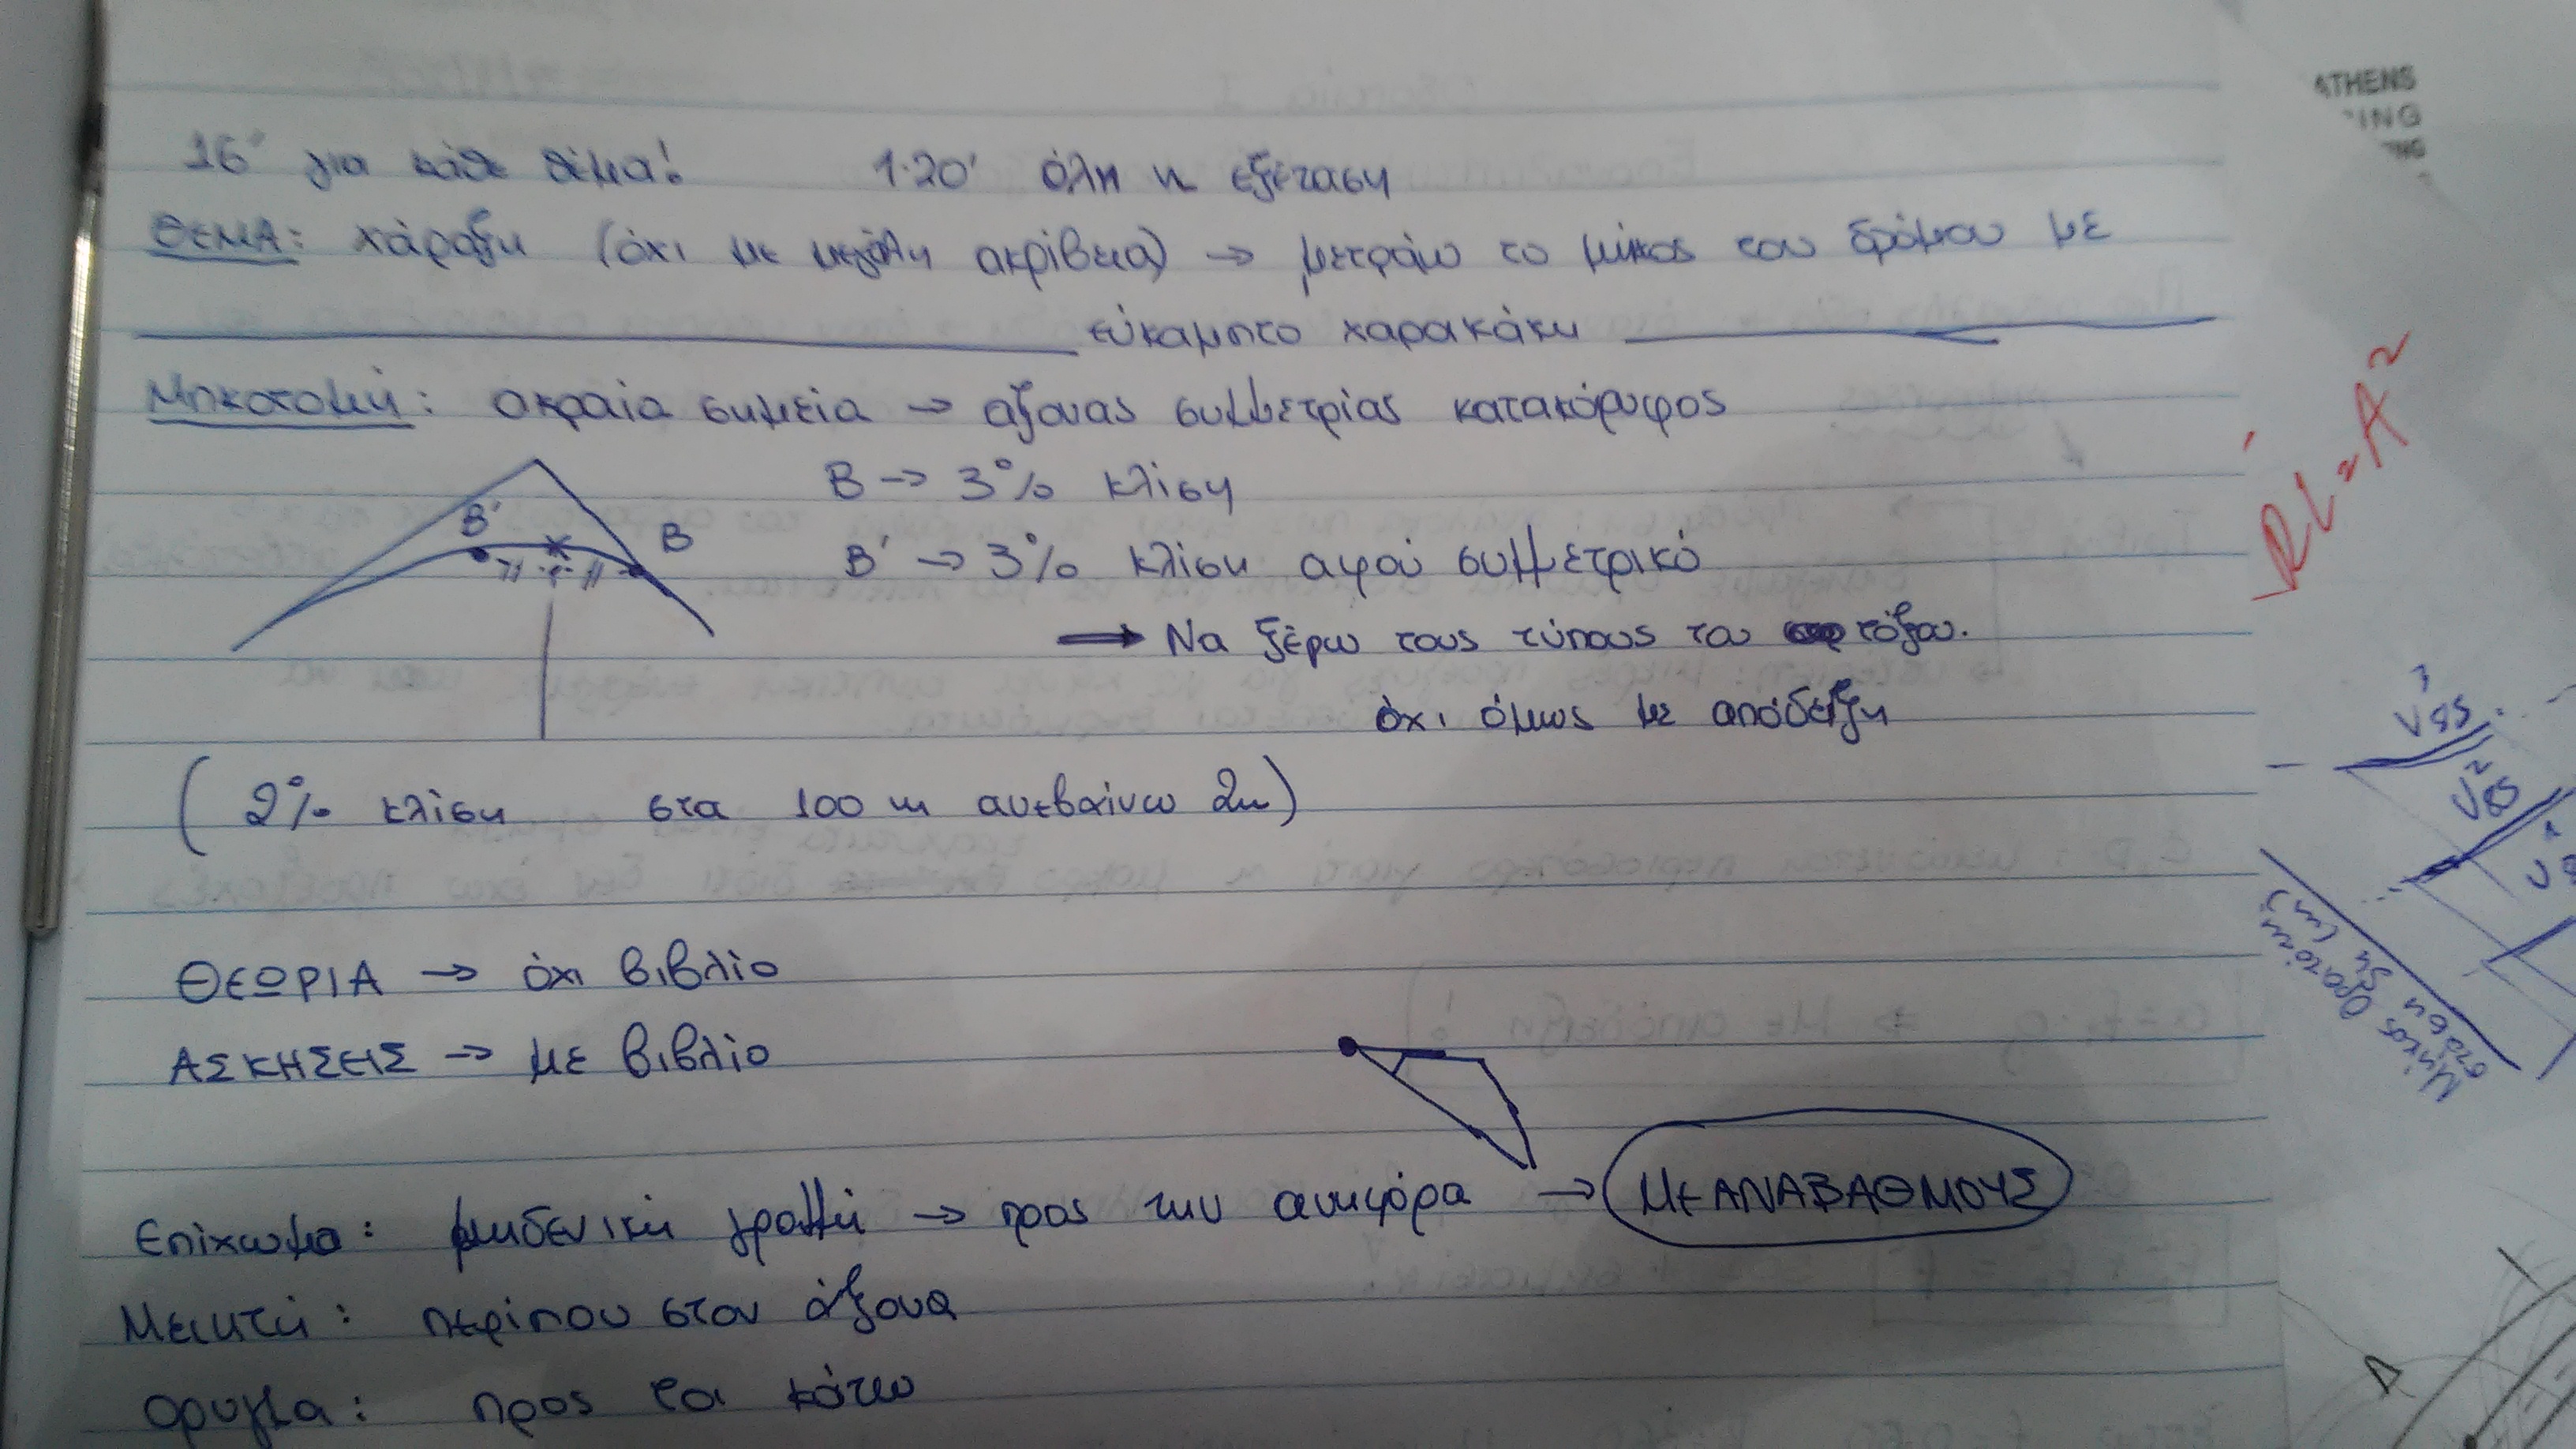 16' για κάθε θέμα! 1.20' όλη η εξέταση
ΘΕΜΑ: χάραξη (όχι με μεγάλη ακρίβεια) → μετράω το μήκος του δρόμου με
εύκαμπτο χαρακάκι
Μηκοτομή: ακραία σημεία → άξονας συμμετρίας κατακόρυφος
B → 3% κλίση
B' B
B' → 3% κλίση αφού συμμετρικό
→ Να ξέρω τους τύπους του τόξου.
όχι όμως με απόδειξη
(2% κλίση στα 100 m ανεβαίνω 2m)
ΘΕΩΡΙΑ → όχι βιβλίο
ΑΣΚΗΣΕΙΣ → με βιβλίο
Επίχωμα: μηδενική γραμμή → προς την ανηφόρα → ΜΕ ΑΝΑΒΑΘΜΟΥΣ
Μεικτή: περίπου στον άξονα
Ορυγμα: προς τα κάτω
ATHENS
RL = A²
V85
V85
Μήκος Ορατότητας
στάση
Δ